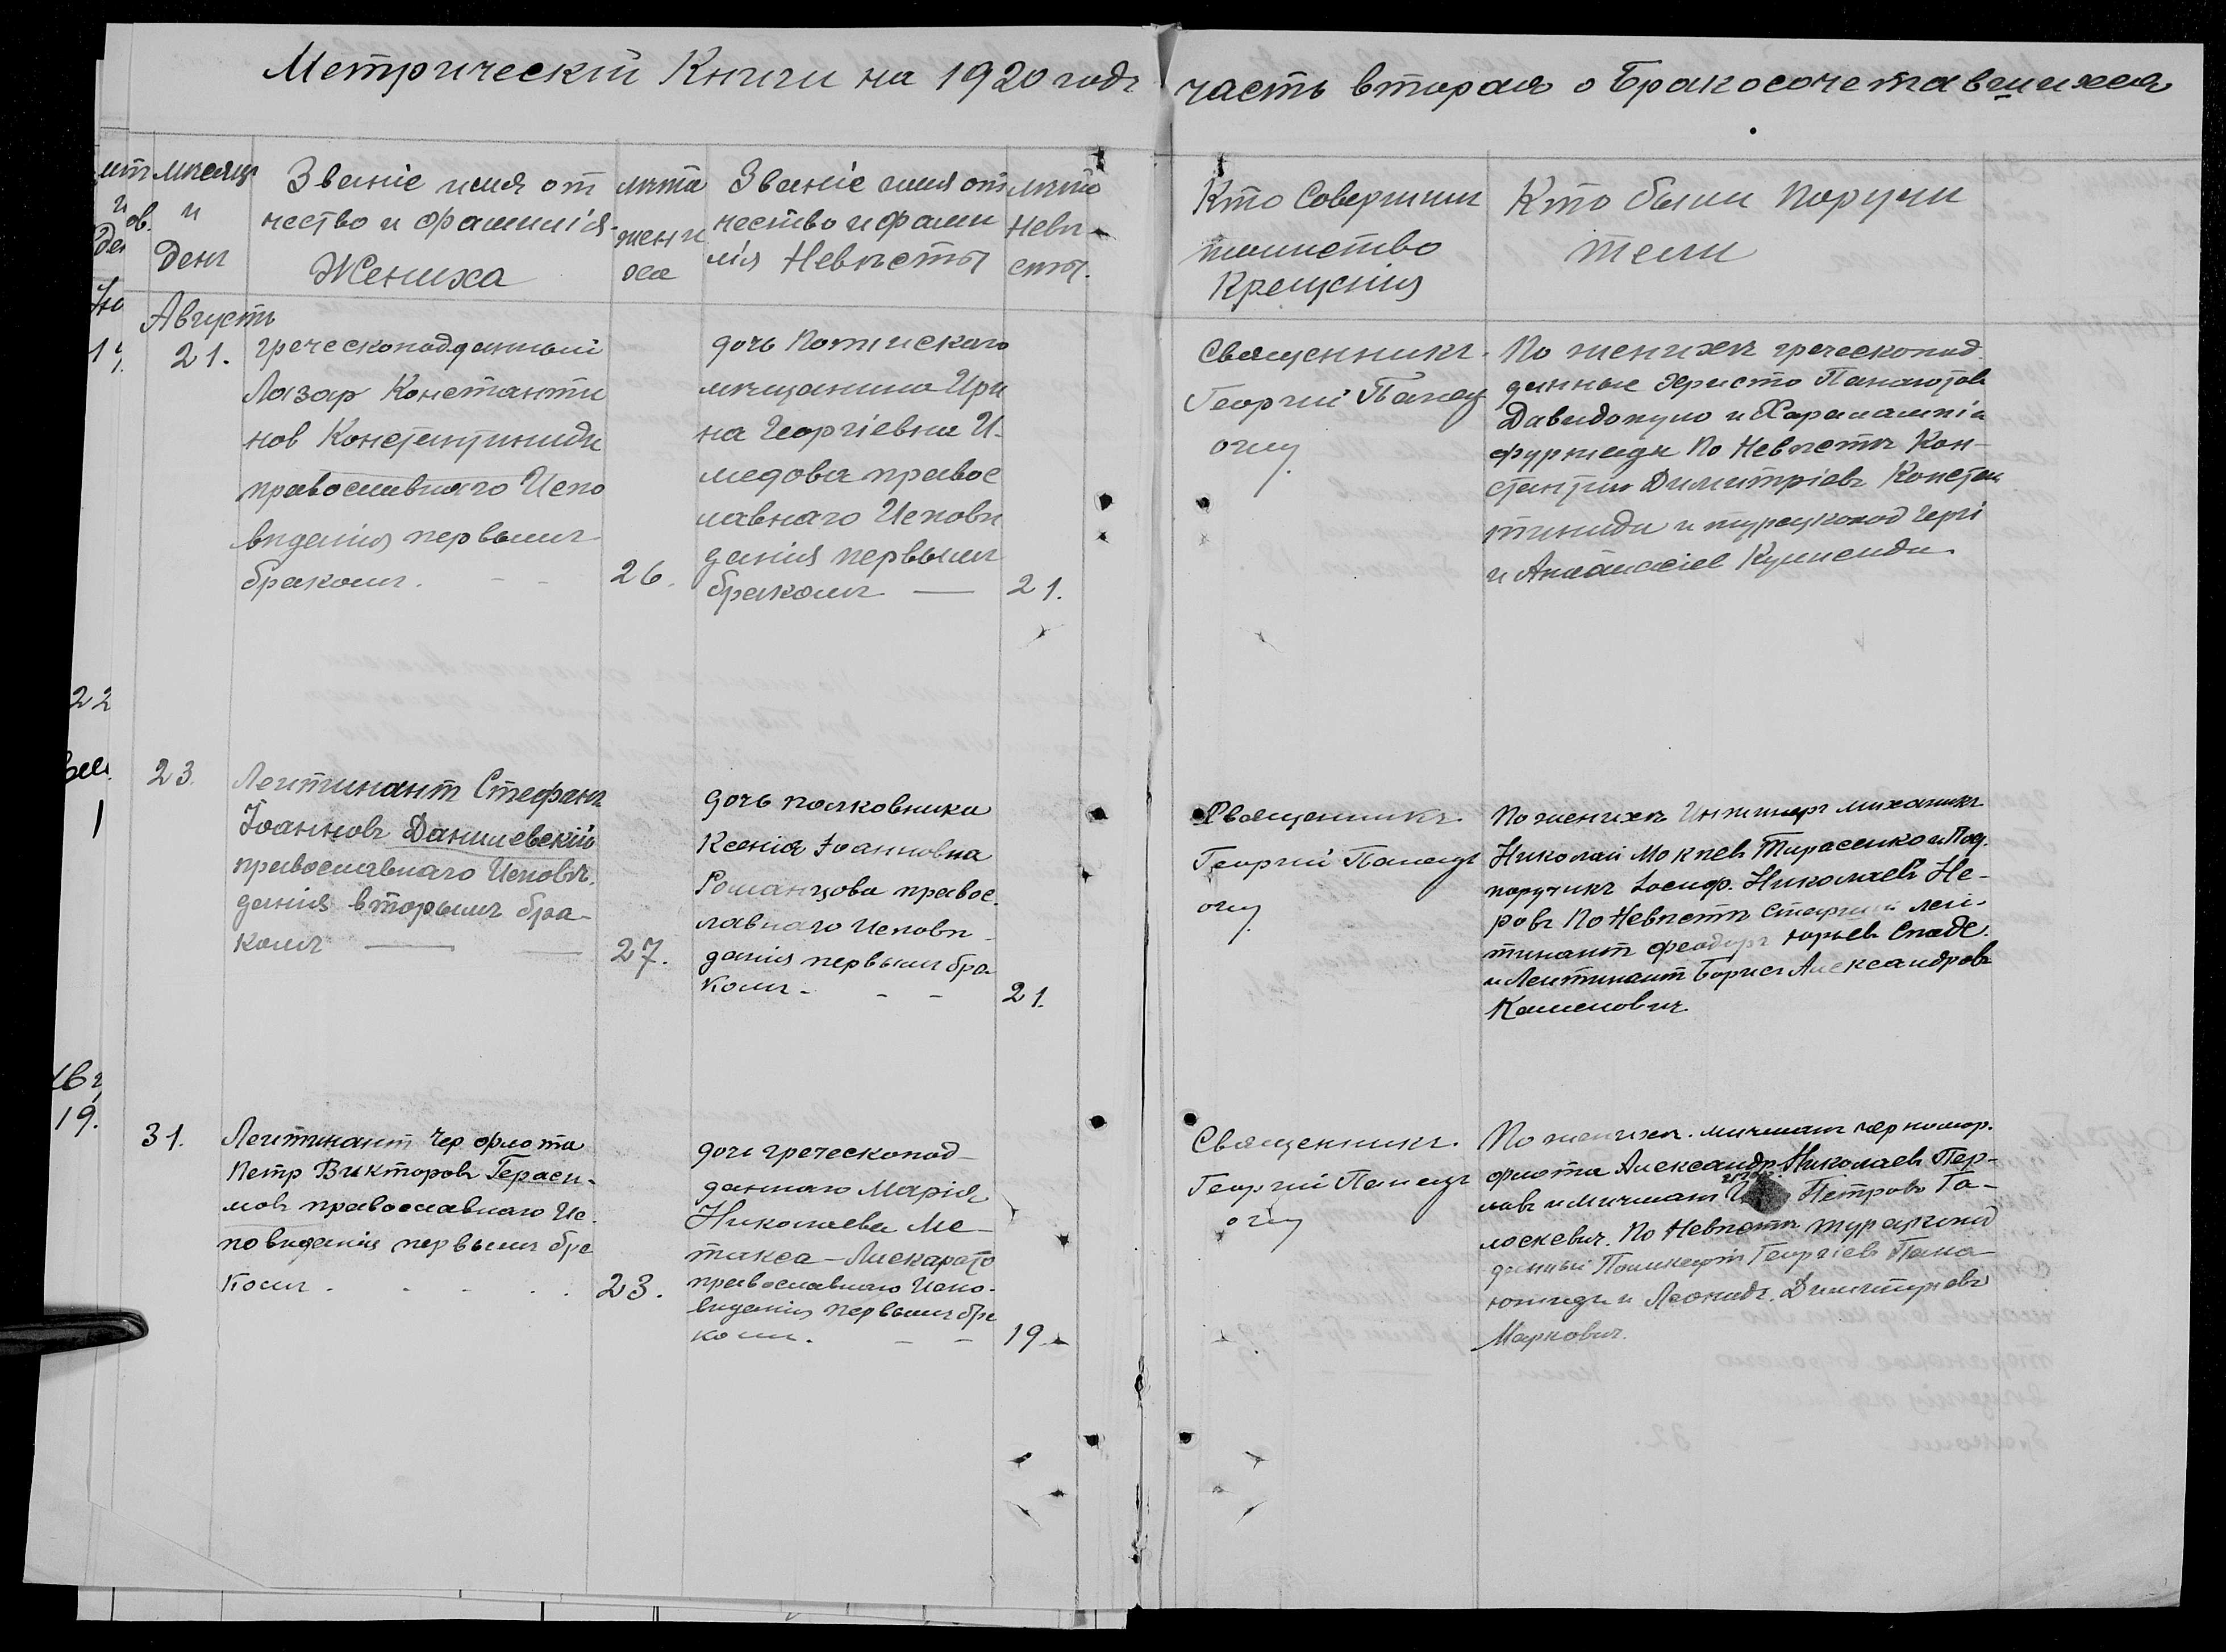 Метрическій Книги на 1920 годъ часть вторая о Бракосочетавшихся
мѣсяцъ
и
День
Званіе имя от
чество и фамилія
Жениха
лѣта
жени
ха
Званіе имя от
чество и фами
лія Невѣсты
лѣта
Невѣ
сты.
Кто Совершил
таинство
Крещенія
Кто были Поручи
тели
Августъ
21.
греческоподданный
Лазар Константи
нов Константиниди
православнаго Испо
вѣданія первымъ
бракомъ. - -
26.
дочь Потийскаго
мѣщанина Ири
на Георгіевна И-
медова правос
лавнаго Исповѣ
данія первымъ
бракомъ —
21.
Священникъ
Георгій Панац
оглу
По женихѣ греческопод
данные Христо Панаіотов
Давидопуло и Харалампій
Фуржиди По Невѣстѣ Кон-
стантин Димитріевъ Констан
тиниди и турецкопод
и Аѳанасіев
22
23.
Лейтинант Стефанъ
Іоанновъ Данилевскій
православнаго Исповѣ.
данія вторымъ бра-
комъ — —
27.
дочь полковника
Ксенія Іоанновна
Романцова правос.
лавнаго Исповѣ
данія первымъ бра
комъ - - -
21.
Священникъ
Георгій Панац
оглу
По женихѣ Инжинеръ механикъ
Николай Мокіев Тарасенко и Под.
поручикъ Іосиф. Николаевъ Не-
ровъ По Невѣстѣ Старшій лей-
тинант Феодоръ Юрьевъ Спаде.
и Лейтинант Борисъ Александровъ
Каменовичъ
19.
31.
Лейтинант Чер флота
Петр Викторовъ Гераси-
мовъ православнаго Ис.
повѣданія первымъ бра
комъ - - - - -
23.
дочь греческопод-
даннаго Марія
Николаева Ме-
такса-Лискарато
православнаго Испо-
вѣданія первымъ бра
комъ. - -
19
Священникъ
Георгій Панац
оглу
По женихѣ. мичманъ черномор.
флота Александр Николаевъ Пер-
лавъ и мичманъ Петровъ Га-
лоскевич. По Невѣстѣ турецкопод
данный Георгіевъ Пана-
іотиди и Леонидъ. Димитріевъ
Марковичъ.